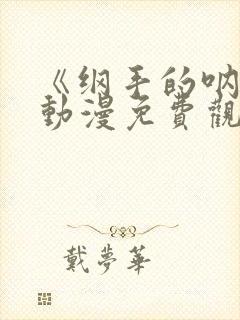 《纲手的呐
動漫免費觀
戴夢華